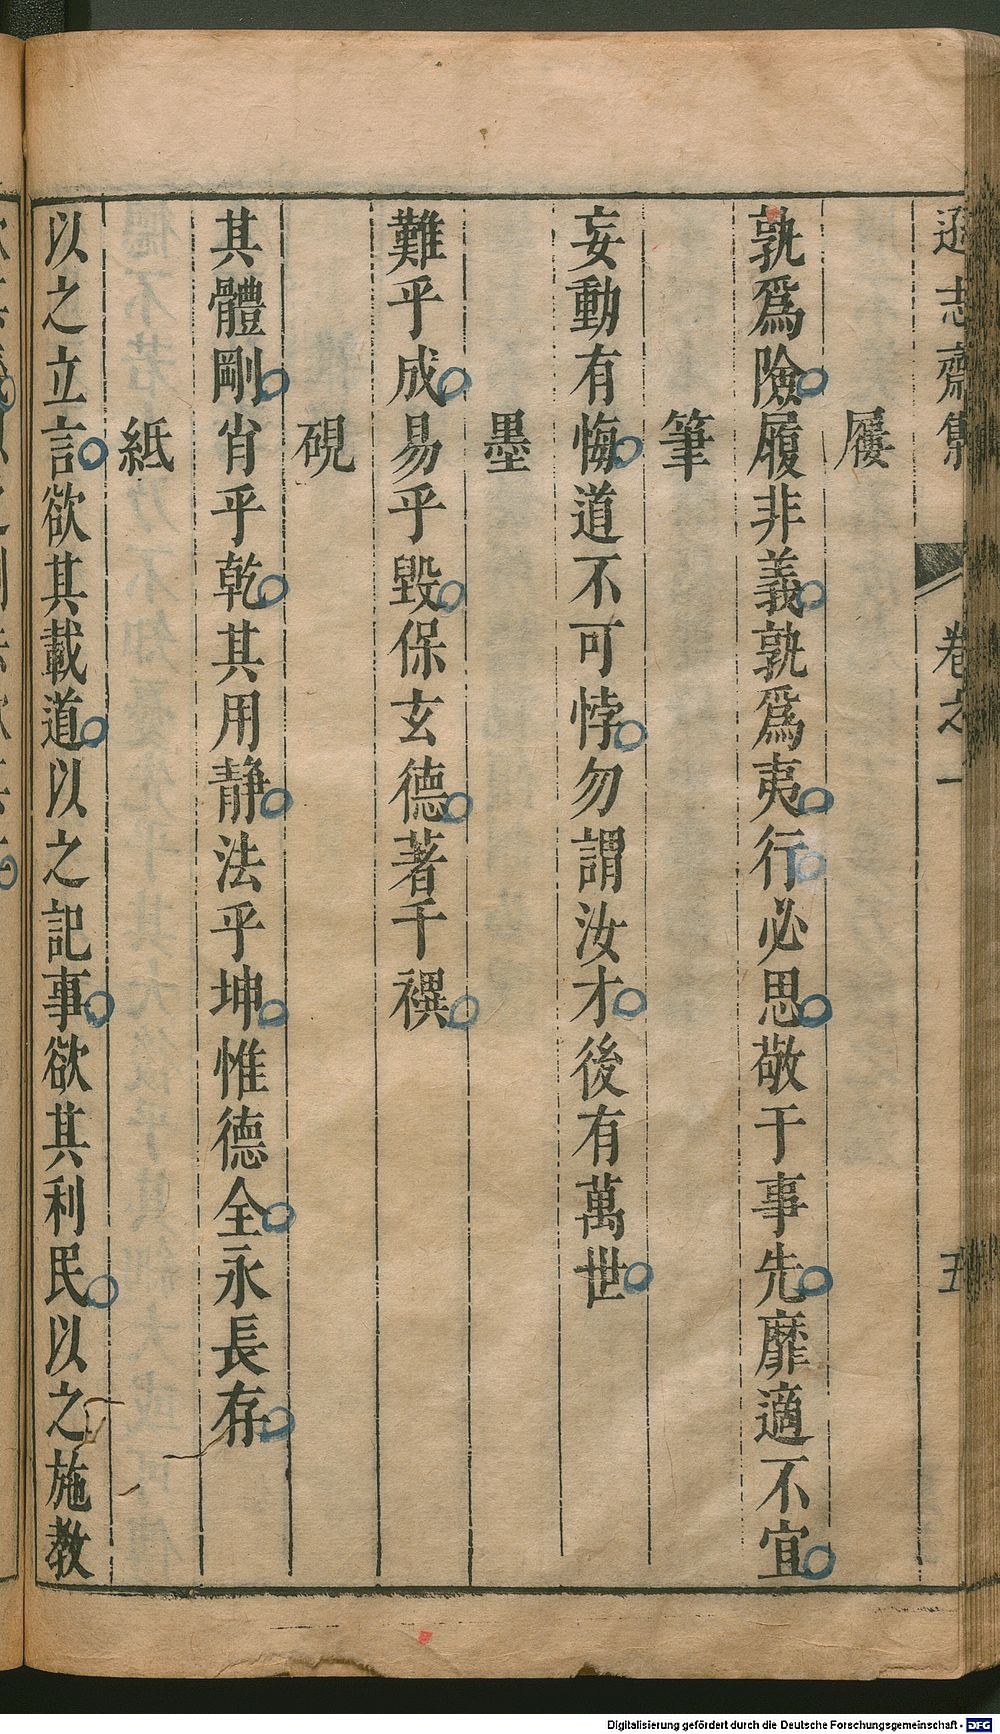 遜志齋集 卷之一 五
屨
孰爲險履非義孰爲夷行必思敬干事先靡適不宜
筆
妄動有悔道不可悖勿謂汝才後有萬世
墨
難乎成易乎毀保玄德著千禩
硯
其體剛肖乎乾其用静法乎坤惟德全永長存
紙
以之立言欲其載道以之記事欲其利民以之施教
Digitalisierung gefördert durch die Deutsche Forschungsgemeinschaft - DFG